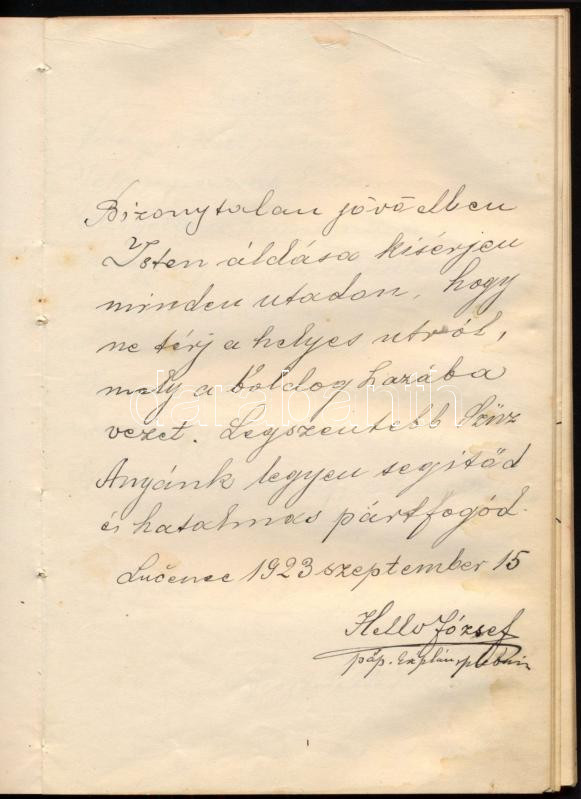 Bizonytalan jövődben
Isten áldása kisérjen
minden utadon, hogy
ne térj a helyes utról,
mely a boldog hazába
vezet. Legszentebb Szűz
Anyánk legyen segítőd
és hatalmas pártfogód.
Lučenec 1923 szeptember 15
Hello József
páp.
darabanth